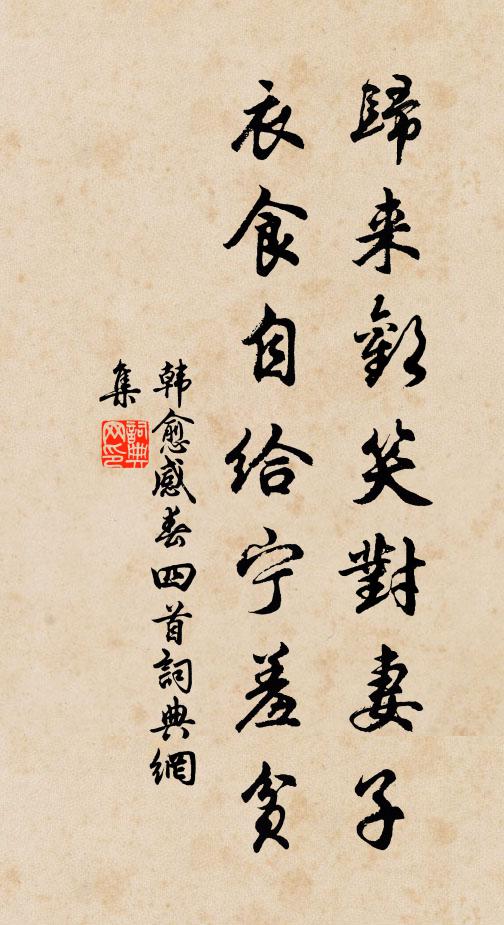 歸来歡笑對妻子
衣食自给宁羞貧
韩愈感春四首詞典網
集
詞典
网印